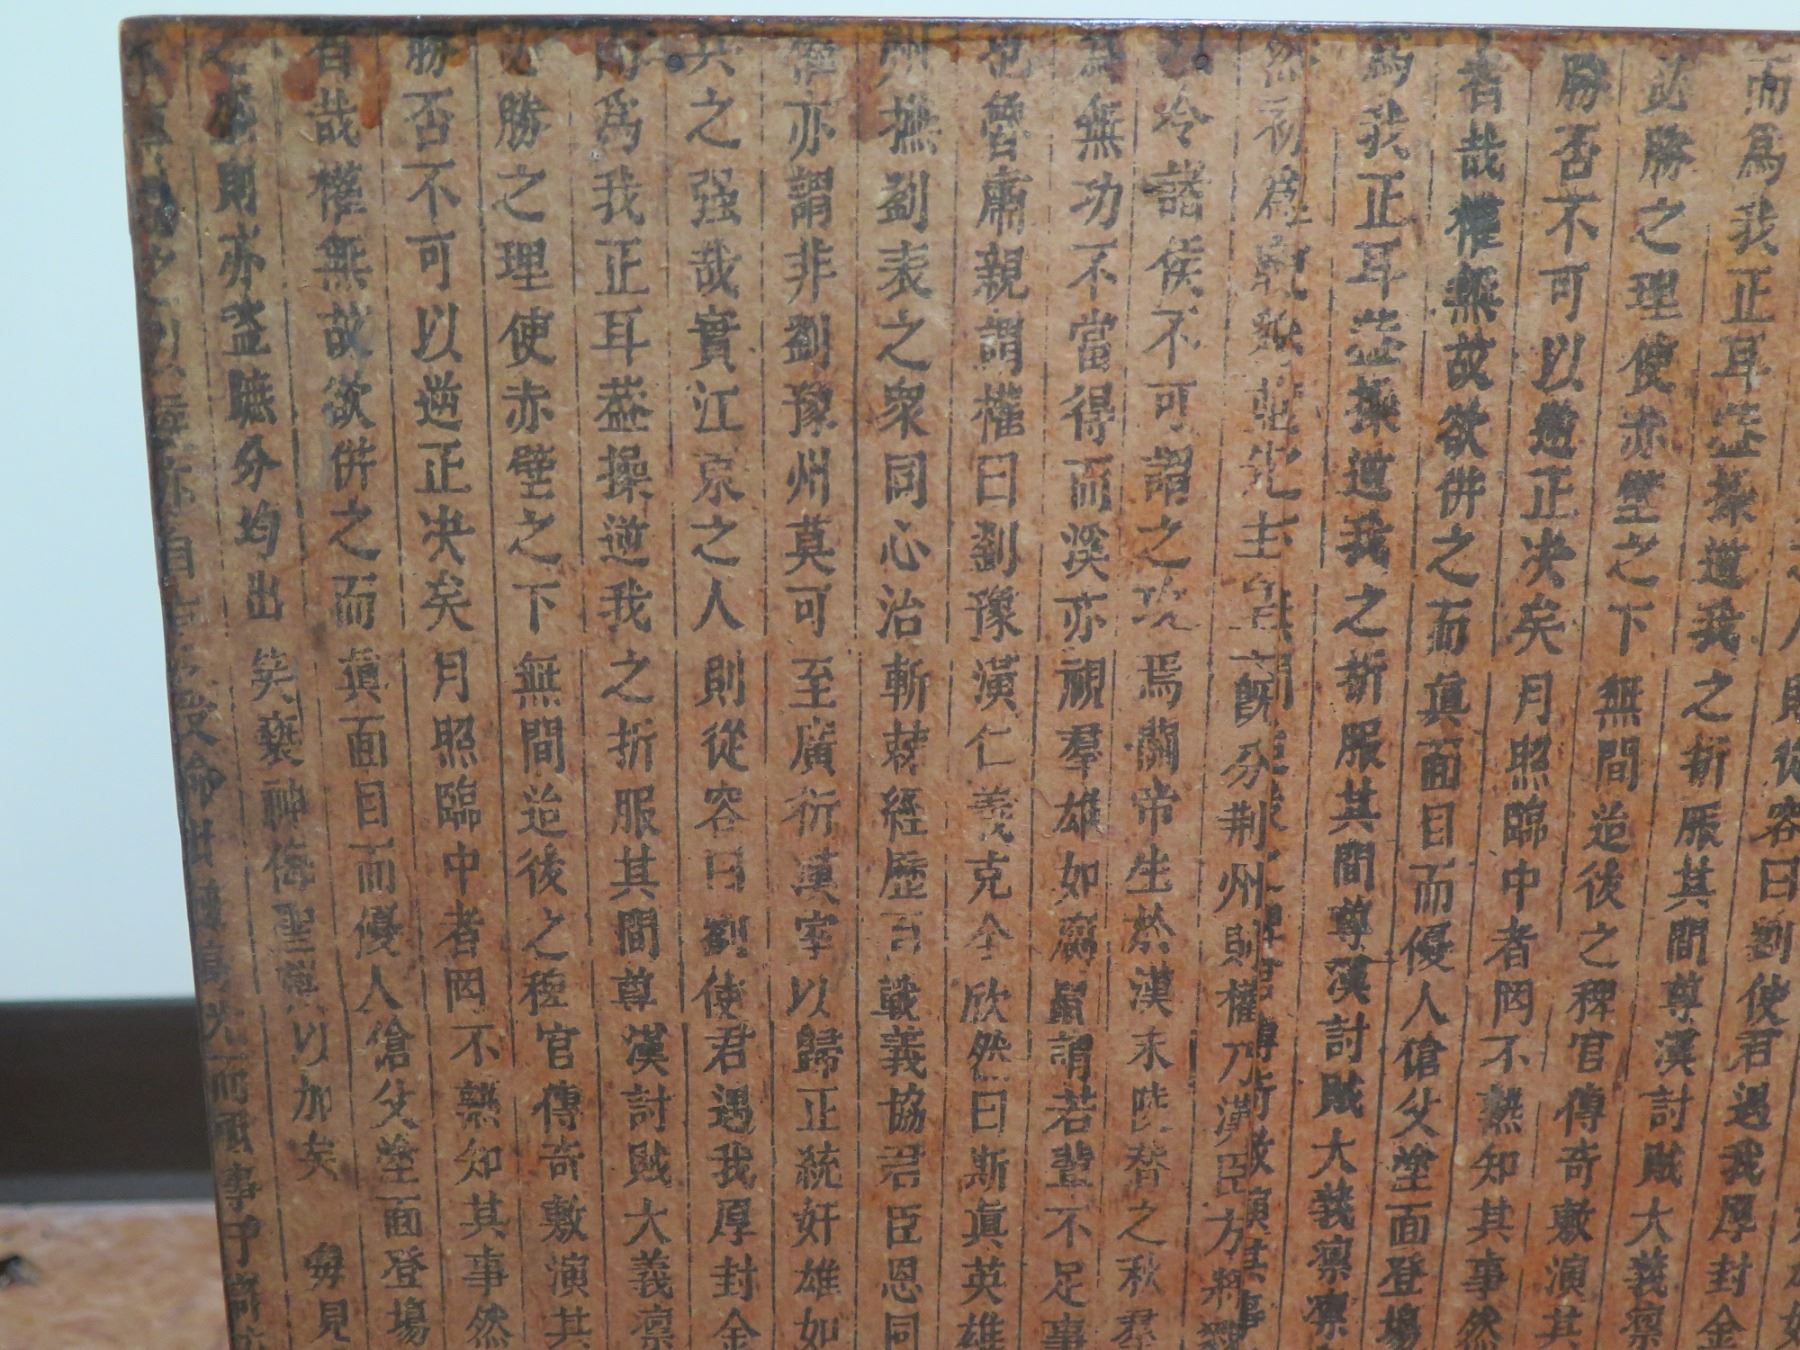 人則從容曰劉使君遇我厚封金
而爲我正耳蓋操逆我之折服其間尊漢討賊大義凜
必勝之理使赤壁之下無間迨後之稗官傳奇敷演其
勝否不可以逆正决矣月照臨中者罔不熟知其事然
者哉權無故欲併之而眞面目而優人傖父塗面登場
爲我正耳蓋操逆我之折服其間尊漢討賊大義凜凜
然初爲先主既分荆州則權乃漢臣方將
冷諸侯不可謂之焉關帝生於漢末陵替之秋羣
爲無功不當得而溪亦視羣雄如腐鼠謂若輩不足事
也魯肅親謂權曰劉豫漢仁義克全欣然曰斯眞英雄
州撫劉表之衆同心治斬棘經歷百戰義協君臣恩同
權亦謂非劉豫州莫可至廣衍漢室以歸正統奸雄如
兵之强哉實江京之人則從容曰劉使君遇我厚封金
而爲我正耳蓋操逆我之折服其間尊漢討賊大義凜
必勝之理使赤壁之下無間迨後之稗官傳奇敷演其
勝否不可以逆正决矣月照臨中者罔不熟知其事然
者哉權無故欲併之而眞面目而優人傖父塗面登場
之則亦盍聽分均出矣褻神侮聖以加矣 每見
之亦自受命而事予